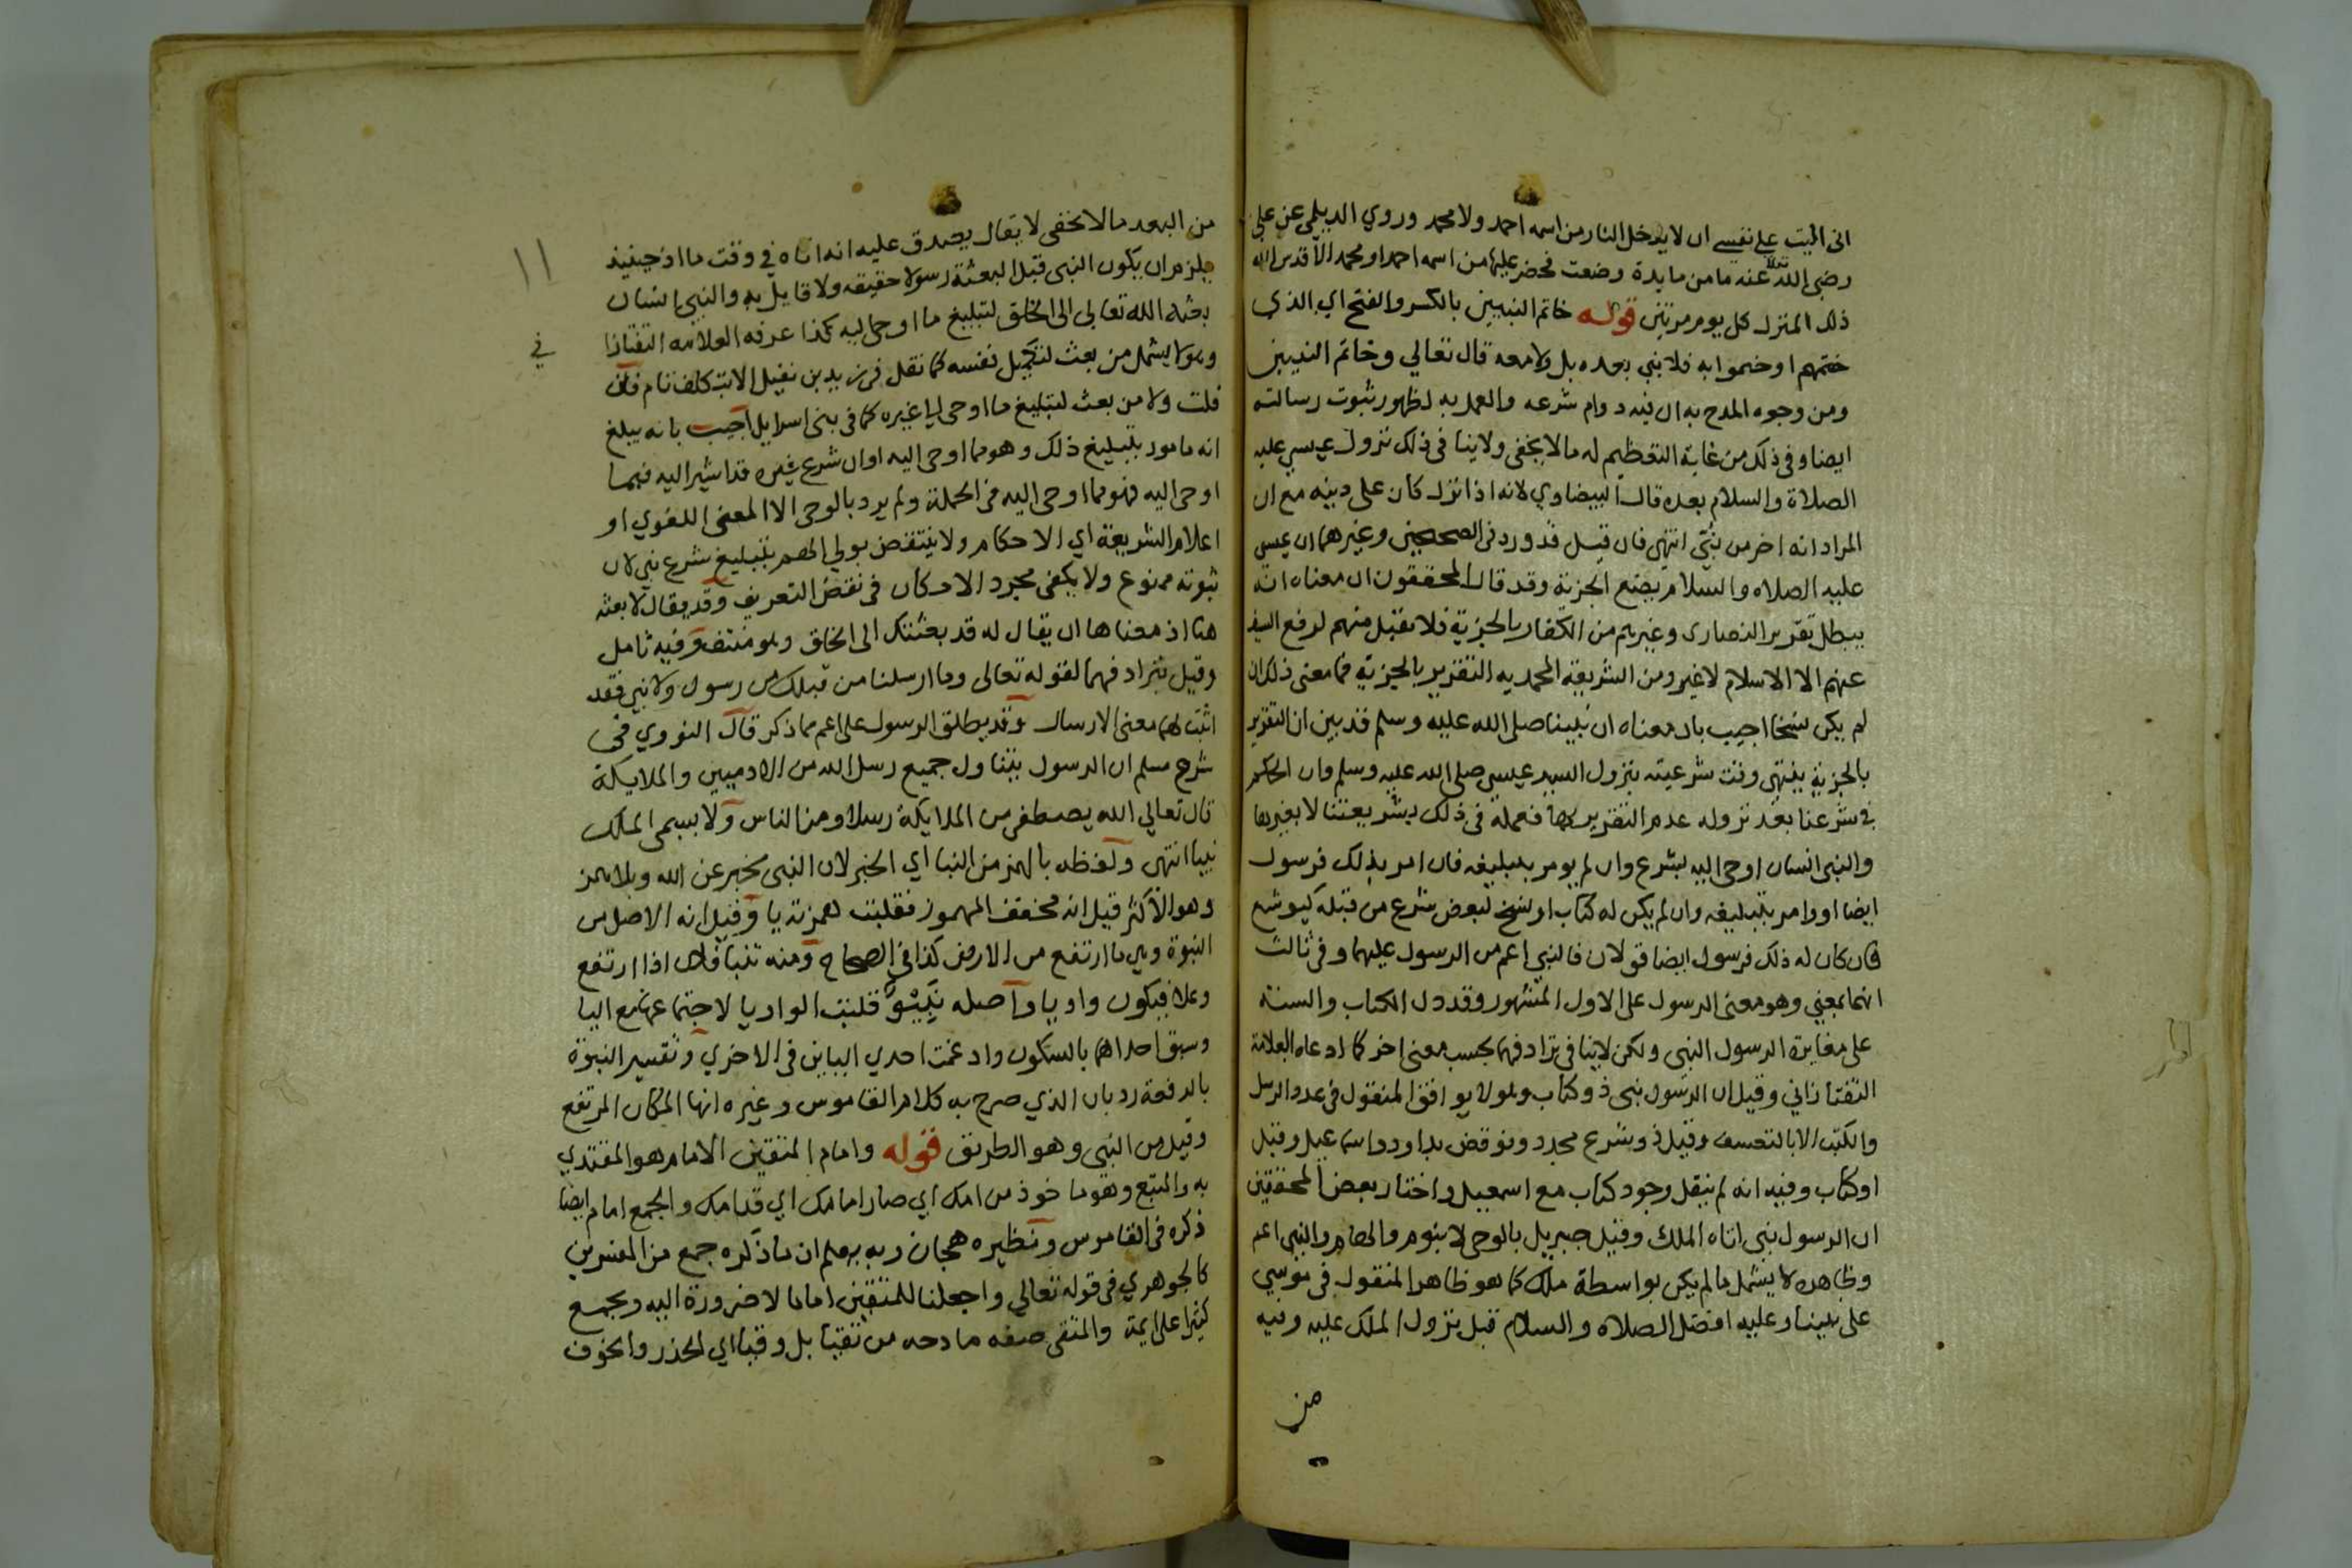 انى اليت على نفسي ان لا يدخل النار من اسمه احمد ولا محمد وروي الديلمي عن علي
رضى الله عنه ما من مايدة وضعت فحضر عليها من اسمه احمد او محمد الا قدس الله
ذلك المنزل كل يوم مرتين قوله خاتم النبيين بالكسر والفتح اي الذي
ختمهم او ختموا به فلا نبي بعده بل ولا معه قال تعالي وخاتم النبيين
ومن وجوه المدح به ان فيه دوام شرعه والعمل به لظهور ثبوت رسالته
ايضا وفى ذلك من غاية التعظيم له مالا يخفى ولا ينا فى ذلك نزول عيسى عليه
الصلاة والسلام بعده قال البيضاوي لانه اذا نزل كان على دينه مع ان
المراد انه اخر من نبئ انتهى فان قيل قد ورد فى الصحيحين وغيرهما ان عيسى
عليه الصلاه والسلام يضع الجزية وقد قال المحققون ان معناه انه
يبطل تقرير النصارى وغيرهم من الكفار بالجزية فلا يقبل منهم لرفع السيف
عنهم الا الاسلام لا غير ومن الشريعة المحمديه التقرير بالجزية فما معنى ذلك ان
لم يكن نسخا اجيب بان معناه ان نبينا صلى الله عليه وسلم قد بين ان التقرير
بالجزية ينتهى وقت شرعيته بنزول السيد عيسى صلى الله عليه وسلم وان الحكم
في شرعنا بعد نزوله عدم التقرير بها فعمله فى ذلك بشريعتنا لا بغيرها
والنبى انسان اوحى اليه بشرع وان لم يومر بتبليغه فان امر بذلك فرسول
ايضا او وامر بتبليغه وان لم يكن له كتاب او نسخ لبعض شرع من قبله كيوشع
فان كان له ذلك فرسول ايضا قولان فالنبي اعم من الرسول عليهما وفى ثالث
انهما بمعني وهو معنى الرسول على الاول المشهور وقد دل الكتاب والسنة
على مغايرة الرسول النبى ولكن لاينا فى ترادفهما بحسب معنى اخر كما ادعاه العلامة
التفتازاني وقيل ان الرسول نبى ذو كتاب وهو لا يوافق المنقول فى عدد الرسل
والكتب الا بالتعسف وقيل ذو شرع مجدد ونوقض بداود واسماعيل وقيل
او كتاب وفيه انه لم ينقل وجود كتاب مع اسمعيل واختار بعض المحققين
ان الرسول نبى اتاه الملك وقيل جبريل بالوحى لا بنوم والهام والنبى اعم
وظاهره لا يشمل ما لم يكن بواسطة ملك كما هو ظاهر المنقول فى موسى
على نبينا وعليه افضل الصلاه والسلام قبل نزول الملك عليه وفيه
من
من البعد مالا يخفى لا يقال يصدق عليه انه اتاه في وقت ما اذ حينيذ
يلزم ان يكون النبى قبل البعثة رسولا حقيقه ولا قايل به والنبى انسان
بعثه الله تعالى الى الخلق لتبليغ ما اوحى اليه كذا عرفه العلامه التفتازا
ني
وهو لا يشمل من بعث لتكميل نفسه كما نقل فى زيد بن نفيل الا بتكلف تام فان
قلت ولا من بعث لتبليغ ما اوحى الى غيره كما فى بنى اسرايل اجيب بانه يبلغ
انه مامور بتبليغ ذلك وهو مما اوحى اليه او ان شرع غيره قد اشير اليه فيما
اوحى اليه فهو مما اوحى اليه فى الجملة ولم يرد بالوحى الا المعنى اللغوي او
اعلام الشريعة اي الاحكام ولا ينتقض بولي الهم بتبليغ شرع نبي لان
ثبوته ممنوع ولا يكفى مجرد الامكان فى نقض التعريف وقد يقال لا بعثه
هنا اذ معناها ان يقال له قد بعثتك الى الخلق وهو منتف وفيه تامل
وقيل بترادفهما لقوله تعالى وما ارسلنا من قبلك من رسول ولا نبي فقد
اثبت لهما معنى الارسال وقد يطلق الرسول على اعم مما ذكر قال النووي فى
شرح مسلم ان الرسول يتناول جميع رسل الله من الادميين والملايكة
قال تعالي الله يصطفى من الملايكة رسلا ومن الناس ولا يسمى الملك
نبيا انتهى ولفظه بالهمز من النبا اي الخبر لان النبى مخبر عن الله وبلا همز
وهو الاكثر قيل انه مخفف المهموز فقلبت همزته يا وقيل انه الاصل من
النبوة وهي ما ارتفع من الارض كذا في الصحاح ومنه تنبا فلان اذا ارتفع
وعلا فيكون واويا واصله نبيو قلبت الواو يا لاجتماعها مع اليا
وسبق احداهما بالسكون وادغمت احدي اليايين فى الاخري وتفسير النبوة
بالرفعة رد بان الذي صرح به كلام القاموس وغيره انها المكان المرتفع
وقيل من النبى وهو الطريق قوله وامام المتقين الامام هو المقتدي
به والمتبع وهو ما خوذ من امك اي صار امامك اي قدامك والجمع امام ايضا
ذكره فى القاموس ونظيره هجان وبه يعلم ان ما ذكره جمع من المفسرين
كالجوهري فى قوله تعالي واجعلنا للمتقين اماما لا ضرورة اليه ويجمع
كثيرا على ايمة والمتقى صفه مادحه من تقيا بل وقيا اي الحذر والخوف
١١